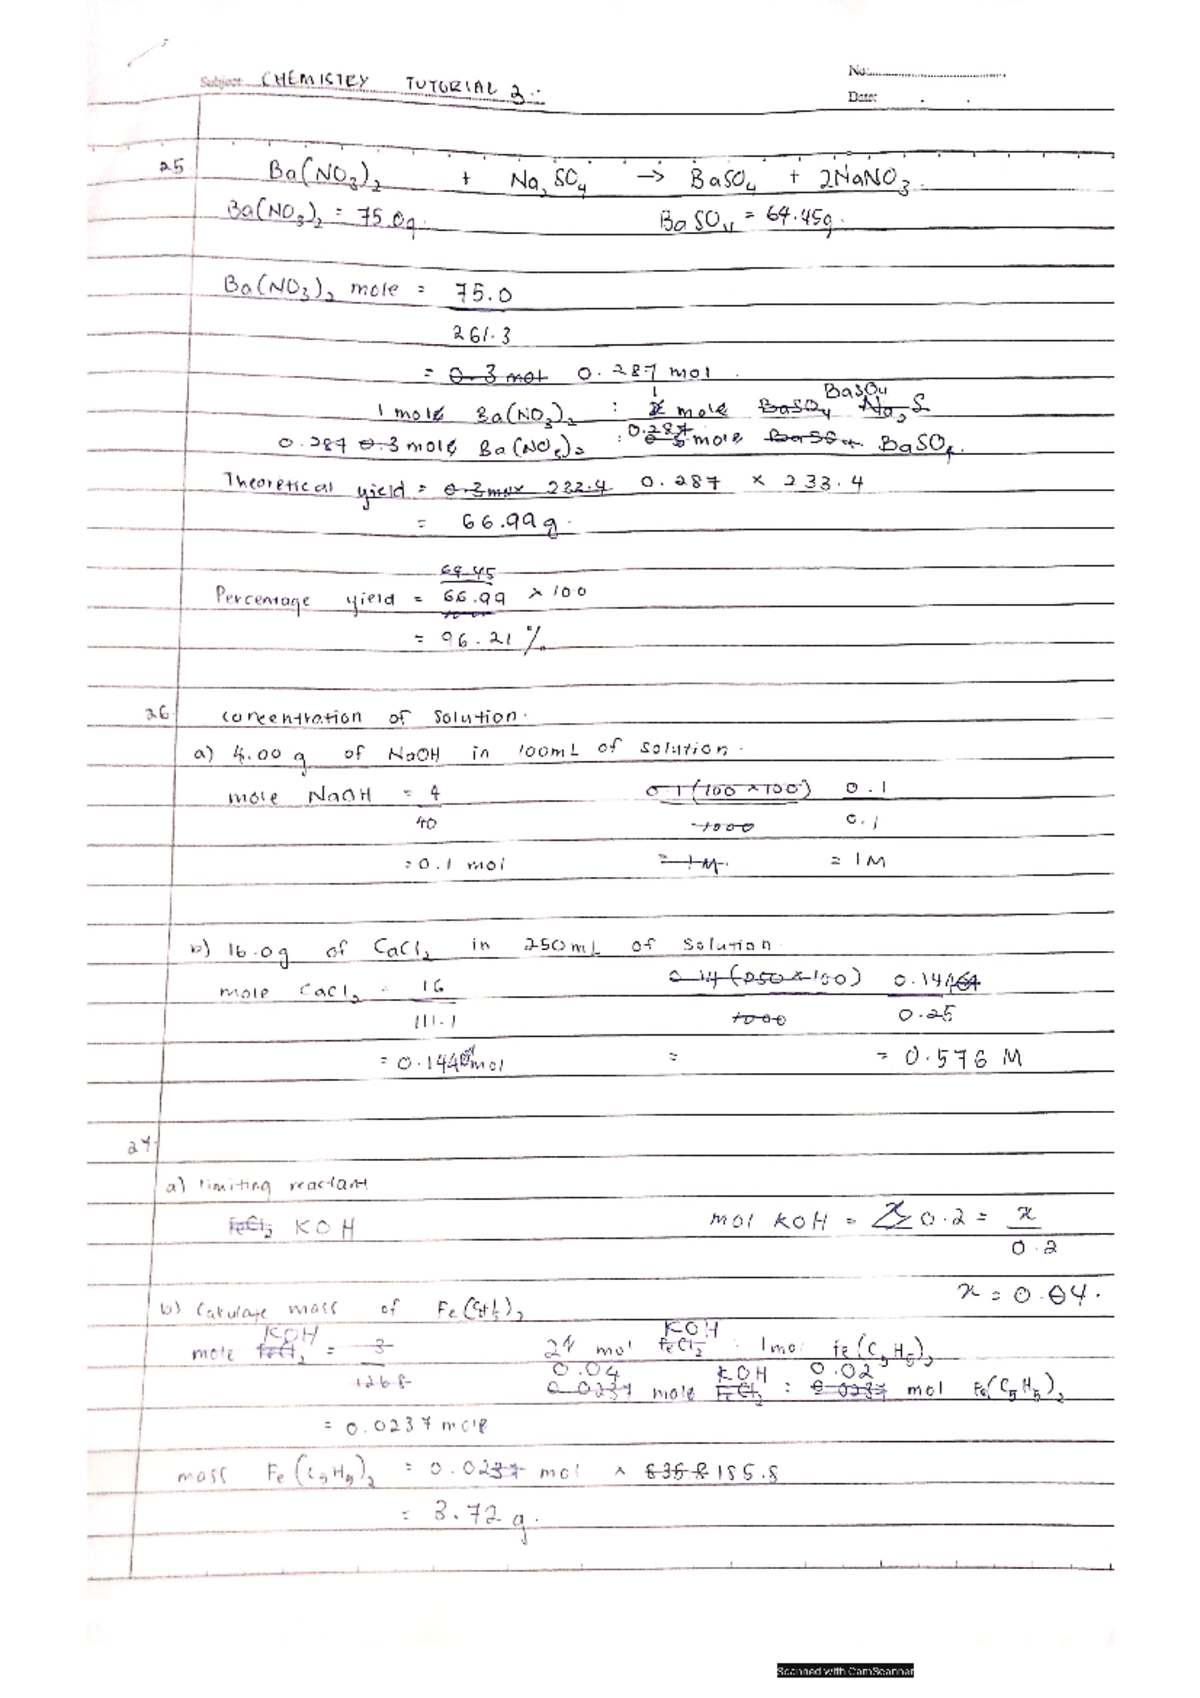 Subject CHEMISTRY TUTORIAL 3.
No:
Date:
25 Ba(NO3)2 + Na2SO4 → BaSO4 + 2NaNO3.
Ba(NO3)2 = 75.0g. BaSO4 = 64.45g.
Ba(NO3)2 mole = 75.0
261.3
= 0.3 mol 0.287 mol.
1 BaSO4
1 mole Ba(NO3)2 : 2 mole BaSO4 Na2S
0.287
0.287 0.3 mole Ba(NO3)2 : mole BaSO4 BaSO4.
Theoretical yield = 233.4 0.287 × 233.4
= 66.99g.
64.45
Percentage yield = 66.99 × 100
= 96.21 %.
26. Concentration of Solution.
a) 4.00 g of NaOH in 100mL of solution.
mole NaOH = 4 0.1 (100 × 100) 0.1
40 1000 0.1
= 0.1 mol = 1M. = 1M
b) 16.0g of CaCl2 in 250mL of solution
mole CaCl2 = 16 0.14 (250 × 100) 0.144
111.1 1000 0.25
= 0.144 mol = = 0.576 M
27
a) limiting reactant
FeCl2 KOH mol KOH = 0.2 = x
0.2
x = 0.04.
b) Calculate mass of Fe(C5H5)2
KOH KOH
mole FeCl2 = 3 2 mol FeCl2 : 1mol Fe(C5H5)2
0.04 KOH 0.02
126.8 0.0237 mole FeCl2 : 0.0237 mol Fe(C5H5)2
= 0.0237 mole
mass Fe(C5H5)2 = 0.0237 mol × 185.8
= 3.72 g.
Scanned with CamScanner